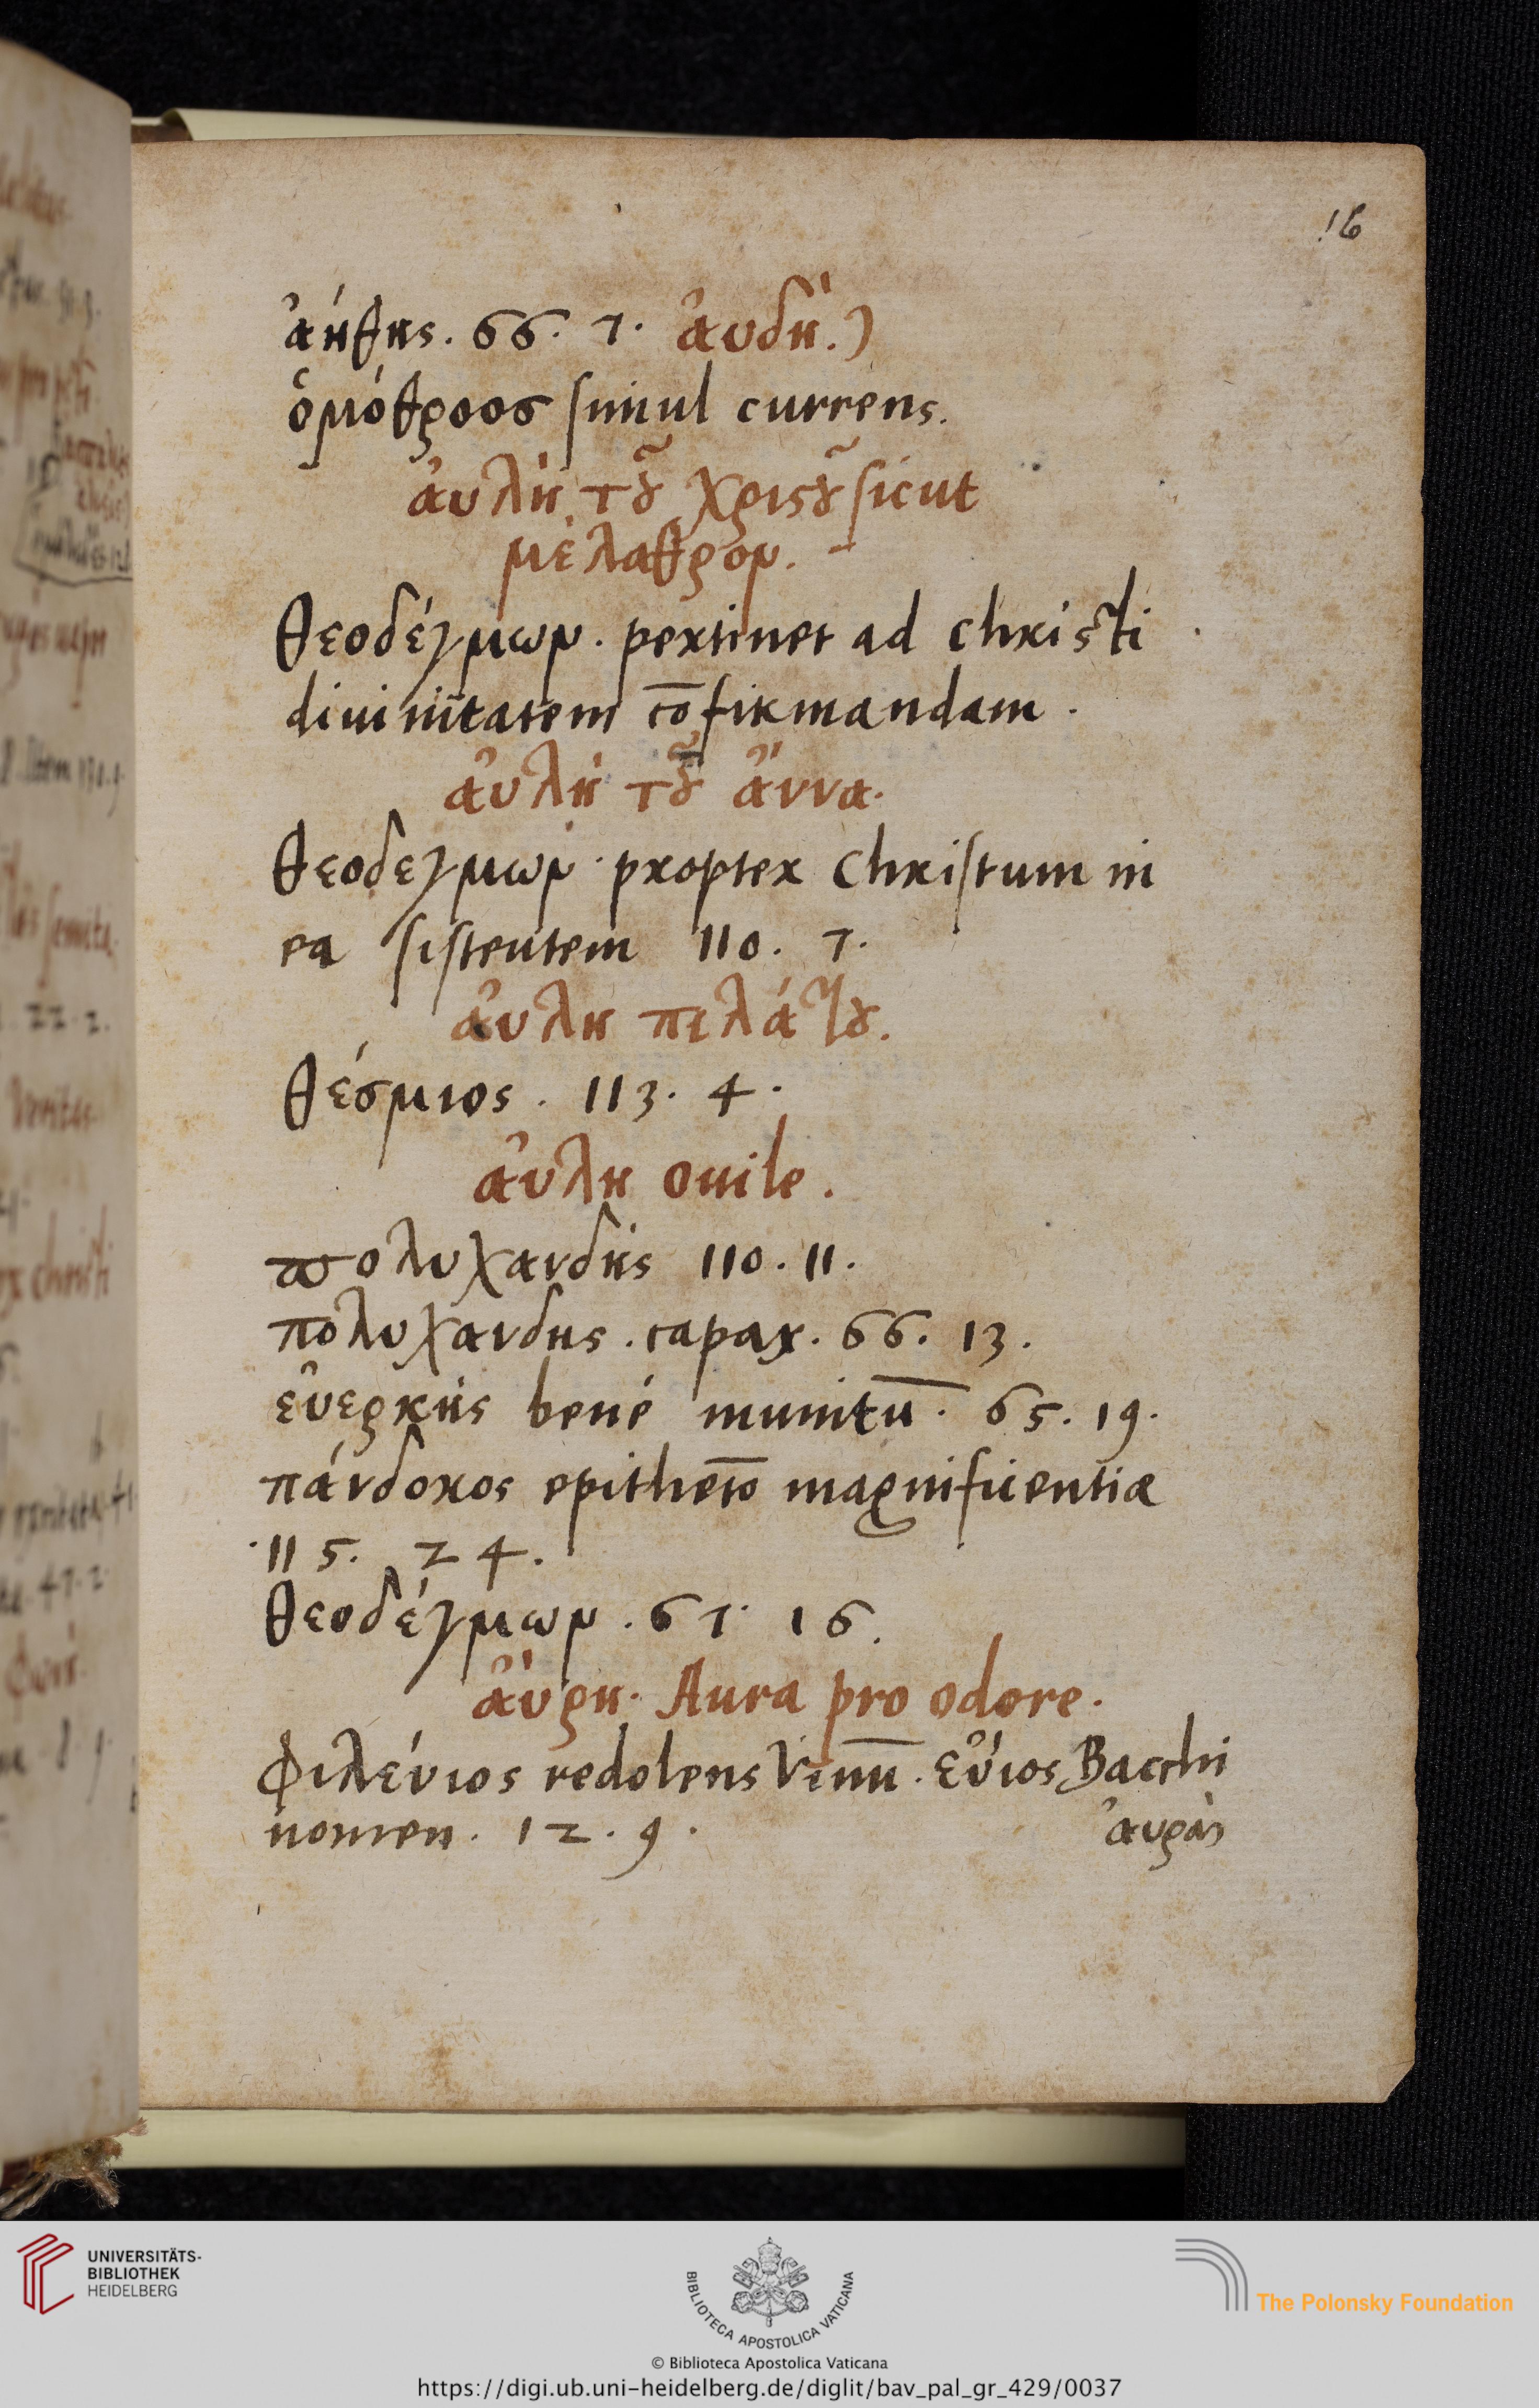 16
ἀήθης. 66. 7. ἀυδή.)
ὁμόθροος simul currens.
ἀυλή τοῦ χριστοῦ sicut
μέλαθρον.
θεοδέγμων. pertinet ad christi
diuinitatem cōfirmandam.
ἀυλή τοῦ ἄννα.
θεοδεγμων. propter Christum in
ea sistentem 110. 7.
ἀυλη πιλάτου.
θέσμιος. 113. 4.
ἀυλη ouile.
πολυχανδής 110. 11.
πολυχανδης. capax. 66. 13.
ἐυερκής bené munitū. 65. 19.
πάνδοκος epithetō magnificentiæ
115. 24.
θεοδέγμων. 67. 16.
ἄυρη. Aura pro odore.
Φιλεύιος redolens Vinū. εὔιος Bacchi
nomen. 12. 9.
UNIVERSITÄTS-
BIBLIOTHEK
HEIDELBERG
BIBLIOTECA APOSTOLICA VATICANA
The Polonsky Foundation
© Biblioteca Apostolica Vaticana
https://digi.ub.uni-heidelberg.de/diglit/bav_pal_gr_429/0037